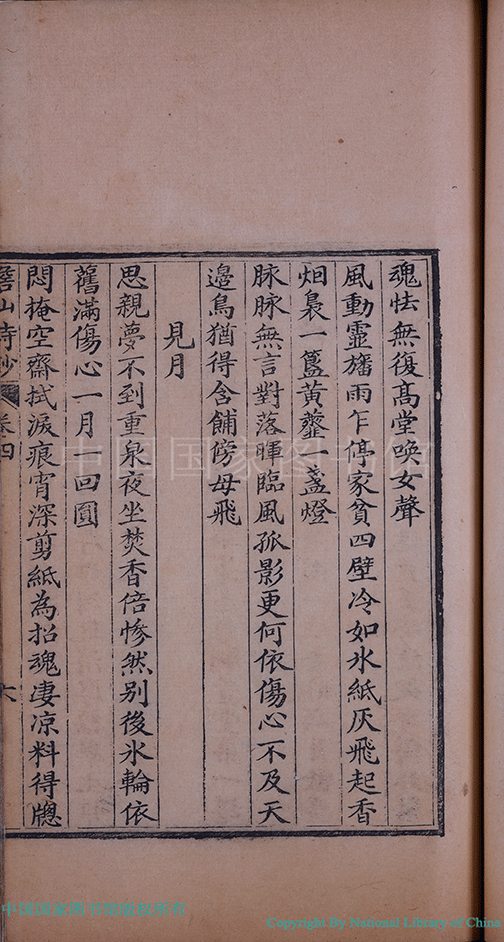 魂怯無復髙堂喚女聲
風動靈旛雨乍停家貧四壁冷如氷紙灰飛起香
烟裊一簋黄虀一盞燈
脉脉無言對落暉臨風孤影更何依傷心不及天
邊鳥猶得含餔傍母飛
見月
思親夢不到重泉夜坐焚香倍慘然别後氷輪依
舊滿傷心一月一回圓
悶掩空齋拭淚痕宵深剪紙為招魂凄凉料得牕
山詩鈔 卷四 六
中国国家图书馆
中国国家图书馆版权所有
Copyright By National Library of China